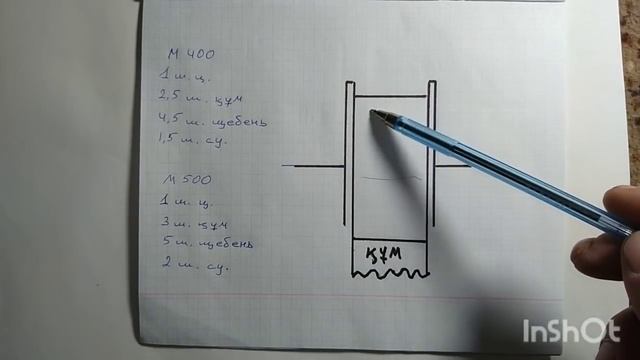 М 400
1 ш. ц.
2,5 ш. қум
4,5 ш. щебень
1,5 ш. су.
М 500
1 ш. ц.
3 ш. қум
5 ш. щебень
2 ш. су.
қум
InShOt